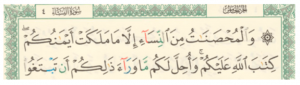 الجزء الخامس ٤ سورة النساء
۞ وَالْمُحْصَنَٰتُ مِنَ النِّسَآءِ إِلَّا مَا مَلَكَتْ أَيْمَٰنُكُمْ
كِتَٰبَ اللَّهِ عَلَيْكُمْ وَأُحِلَّ لَكُم مَّا وَرَآءَ ذَٰلِكُمْ أَن تَبْتَغُوا